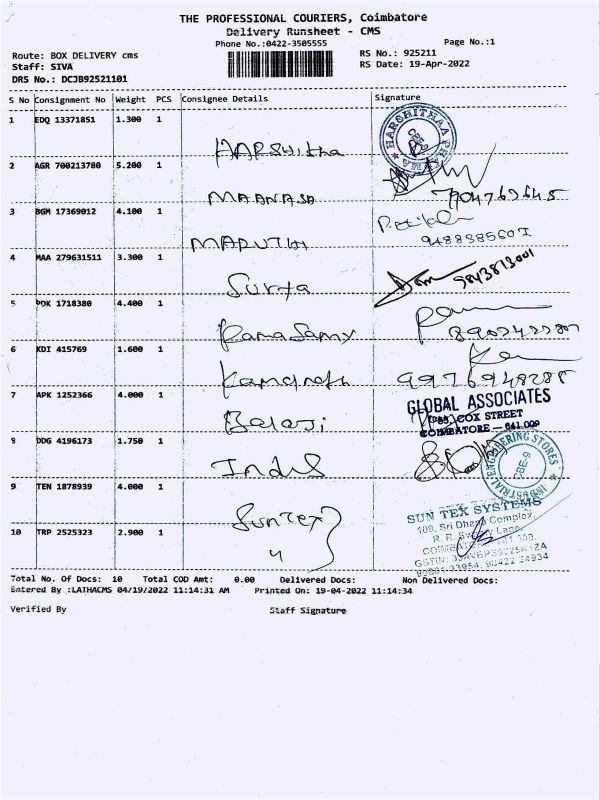 THE PROFESSIONAL COURIERS, Coimbatore
Delivery Runsheet - CMS
Phone No.:0422-3505555
Page No.:1
Route: BOX DELIVERY cms
Staff: SIVA
DRS No.: DCJB92521101
RS No.: 925211
RS Date: 19-Apr-2022
S No Consignment No Weight PCS Consignee Details Signature
1 EDQ 13371851 1.300 1
HARSHITHAA PHARMA
CBE-9
Harshitha
2 AGR 700213780 5.200 1
MAANASA
3 BGM 17369012 4.100 1
MARUTHI
4 MAA 279631511 3.300 1
Surya 9843813001
5 PDK 1718380 4.400 1
Ramasamy
6 KDI 415769 1.600 1
Kamalnath 9976948288
7 APK 1252366 4.000 1
GLOBAL ASSOCIATES
COX STREET
COIMBATORE - 641 009
Balaji
8 DDG 4196173 1.750 1
INDUSTRIAL ENGINEERING STORES
CBE-9
Indus
9 TEN 1878939 4.000 1
Suntex
SUN TEX SYSTEMS
109, Sri Dhana Complex,
10 TRP 2525323 2.900 1
"
Total No. Of Docs: 10 Total COD Amt: 0.00 Delivered Docs: Non Delivered Docs:
Entered By :LATHACMS 04/19/2022 11:14:31 AM Printed On: 19-04-2022 11:14:34
Verified By Staff Signature